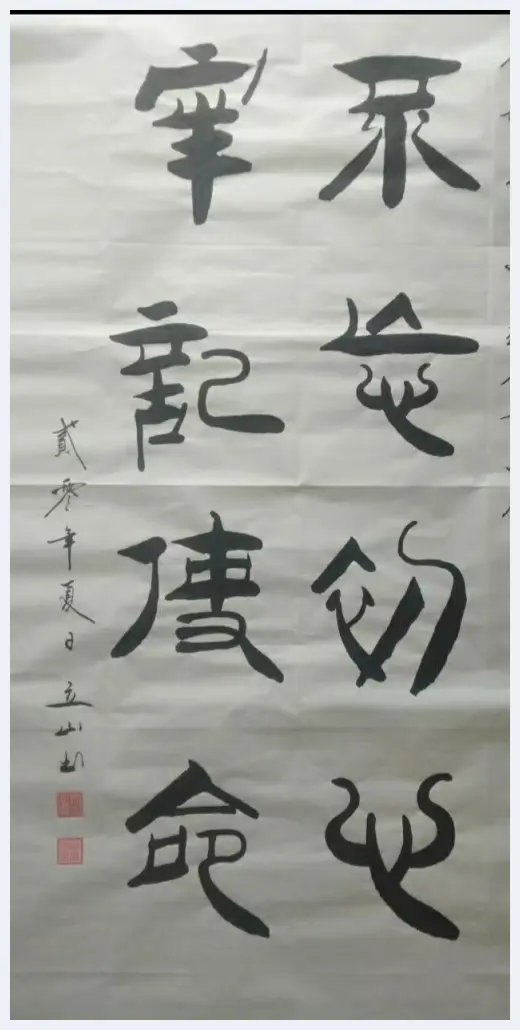 不忘初心
牢記使命
貳零年夏日 立山书